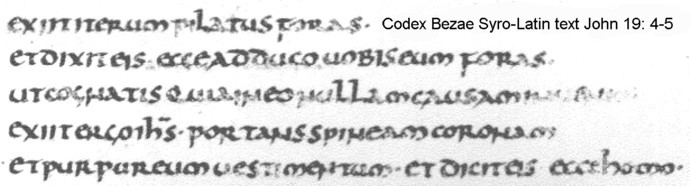 exiit iterum pilatus foras· Codex Bezae Syro-Latin text John 19: 4-5
et dixit eis· ecce adduco uobis eum foras·
ut cognatis quia in eo nullam causam
exiit ergo ih̅s· portans spineam coronam
et purpureum uestimentum· et dicit eis ecce homo·